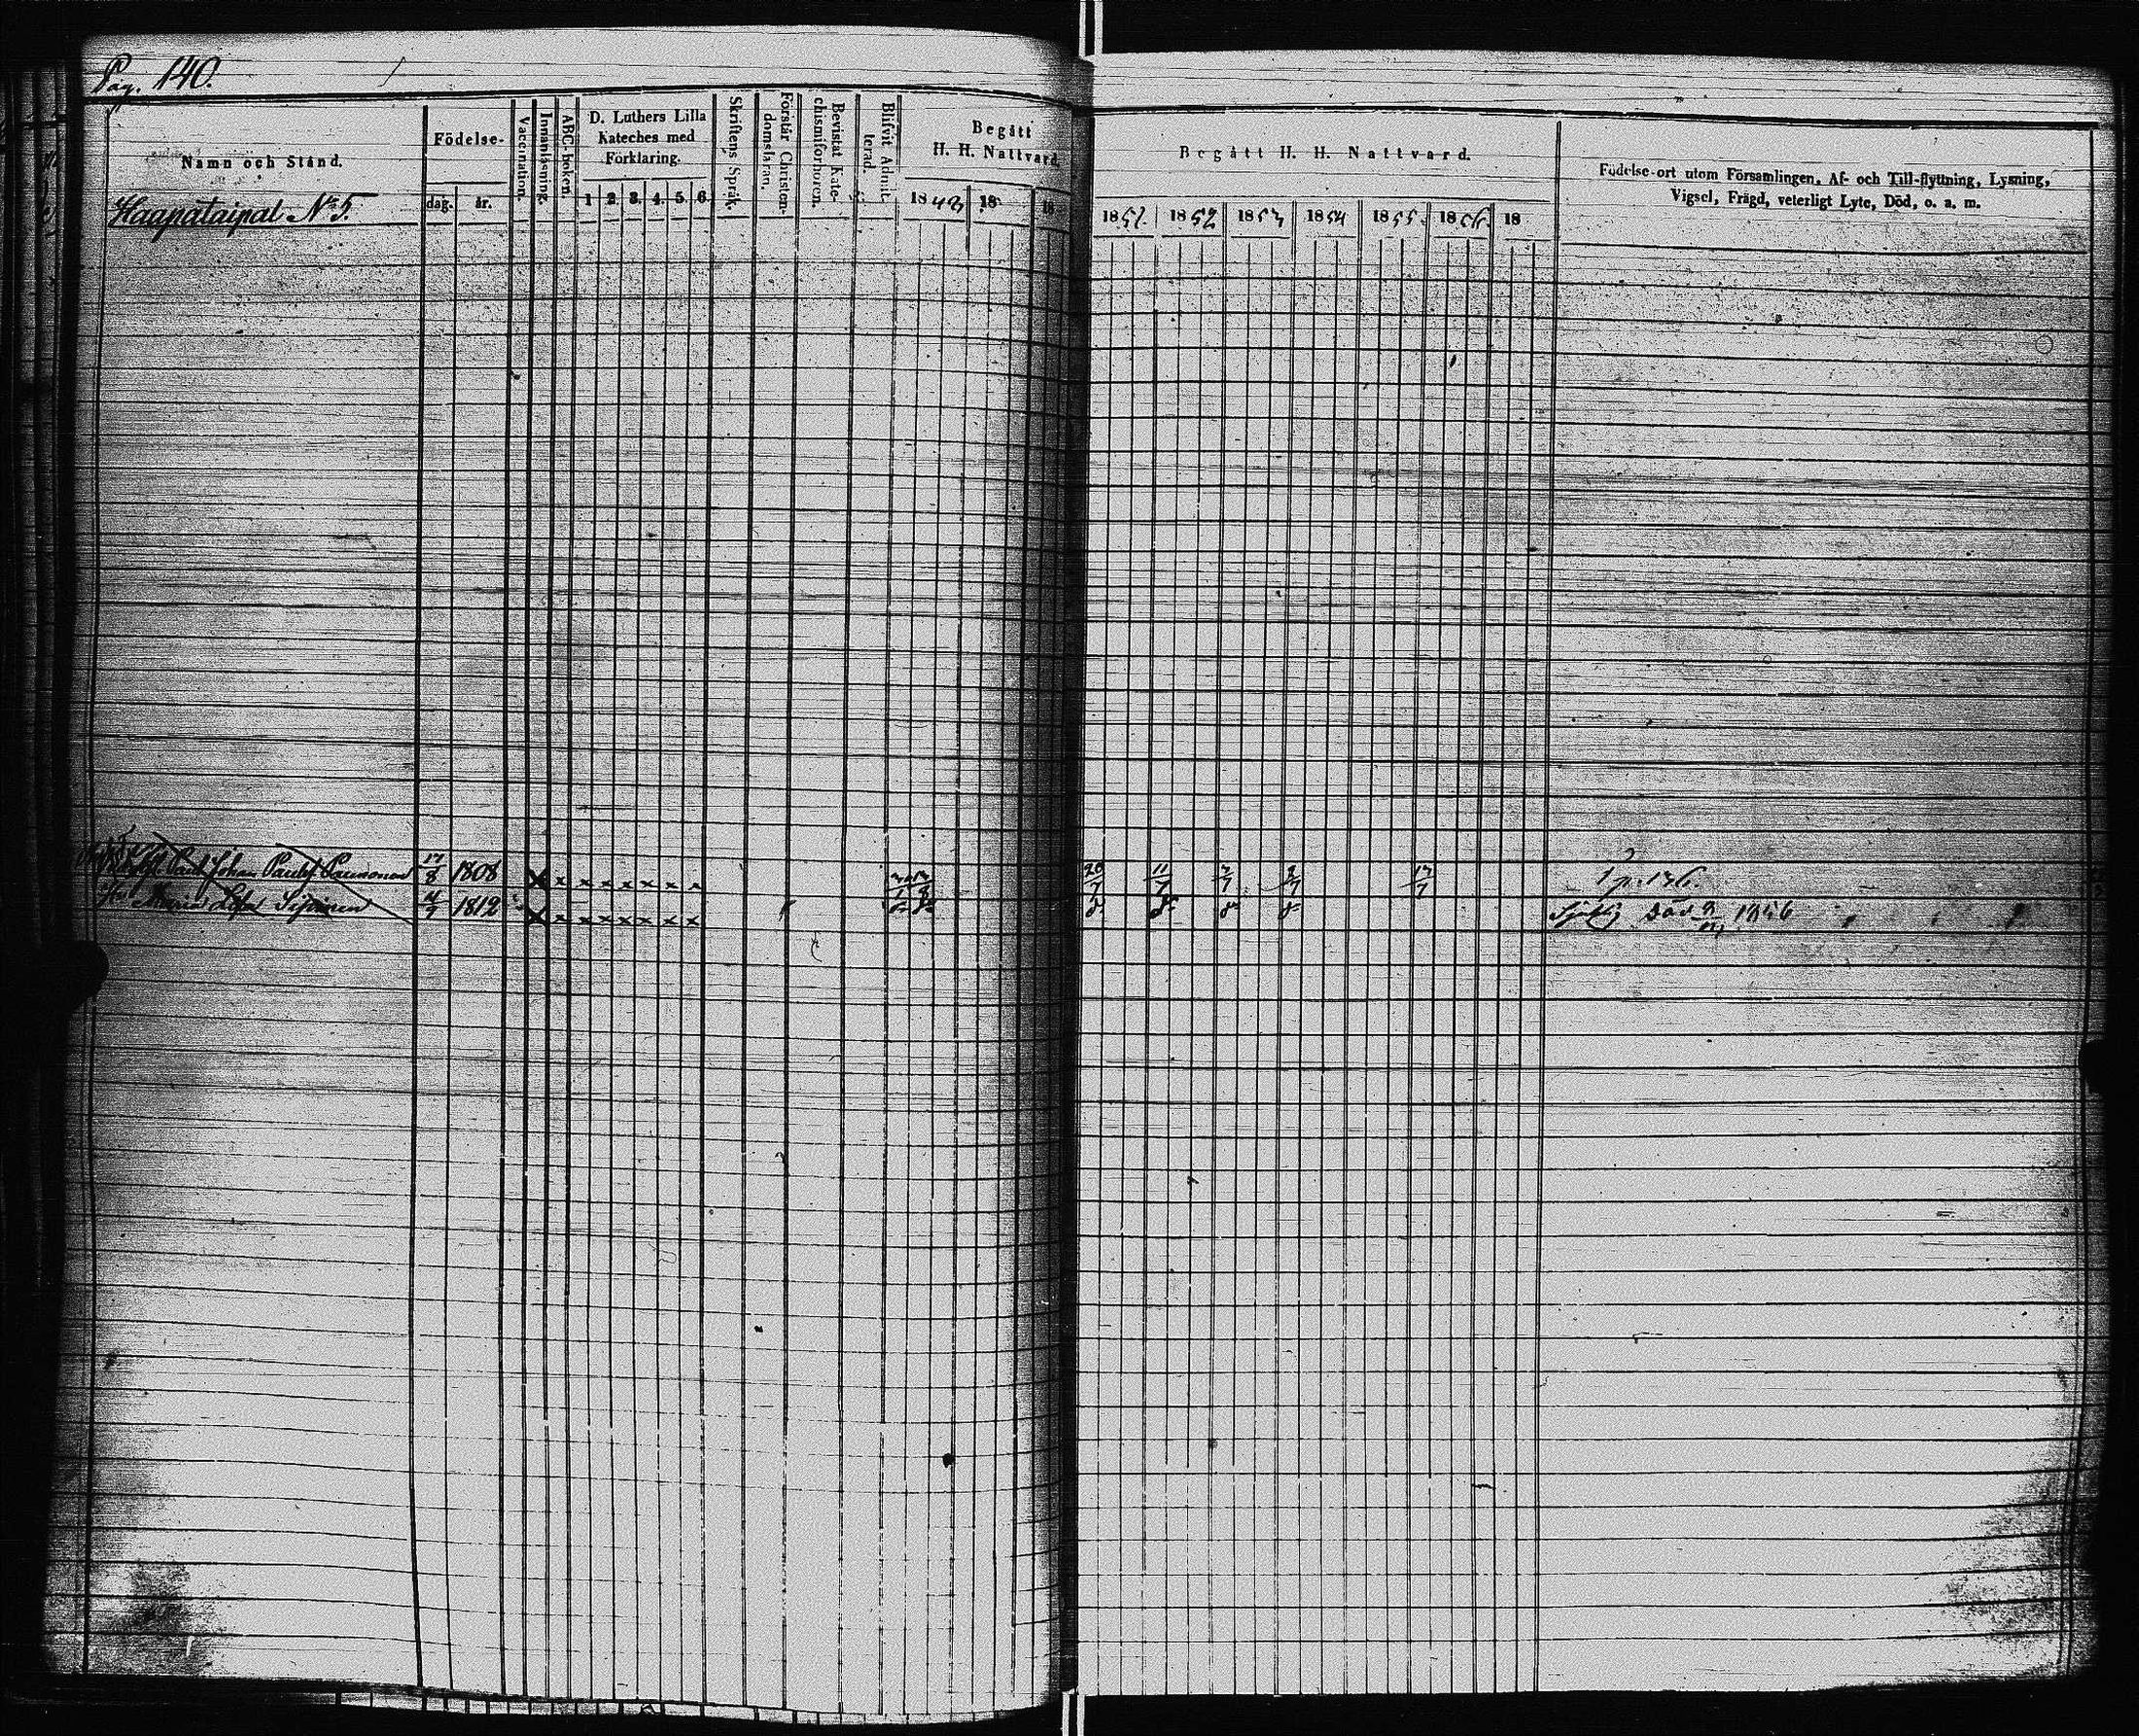 Pag. 140.
Namn och Stånd.
Haapataipal No 5.
Födelse-
dag. år.
Vaccination.
Innanläsning.
ABC-boken.
D. Luthers Lilla
Kateches med
Förklaring.
1 2. 3. 4. 5. 6
Skriftens Språk.
Förstår Christen-
domsläran.
Bevistat Kate-
chismiförhören.
Blifvit Admit-
terad.
Begått
H. H. Nattvard.
1843 18 18
Begått H. H. Nattvard.
1851. 1852 1853 1854 1855. 1856. 18
Födelse-ort utom Församlingen, Af- och Till-flyttning, Lysning,
Vigsel, Frägd, veterligt Lyte, Död, o. a. m.
Johan Paulss. Paunonen 17/8 1808 x x x x x x x x 20/7 11/7 3/7 2/7 17/7 p. 136.
Maria 1812 x x x x x x x x Sjuklig Död 1856